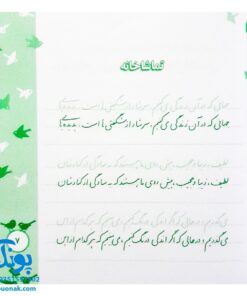 تماشاخانه
جهانی که در آن زندگی می‌کنیم، سرشار از شگفتی‌ها است. پدیده‌هایی
جهانی که در آن زندگی می‌کنیم، سرشار از شگفتی‌ها است. پدیده‌هایی
لطیف، زیبا و عجیب، پیش روی ما هستند که به سادگی از کنارشان
لطیف، زیبا و عجیب، پیش روی ما هستند که به سادگی از کنارشان
می‌گذریم؛ در حالی که اگر اندکی درنگ کنیم، می‌بینیم که هر کدام از این
می‌گذریم؛ در حالی که اگر اندکی درنگ کنیم، می‌بینیم که هر کدام از این
۷